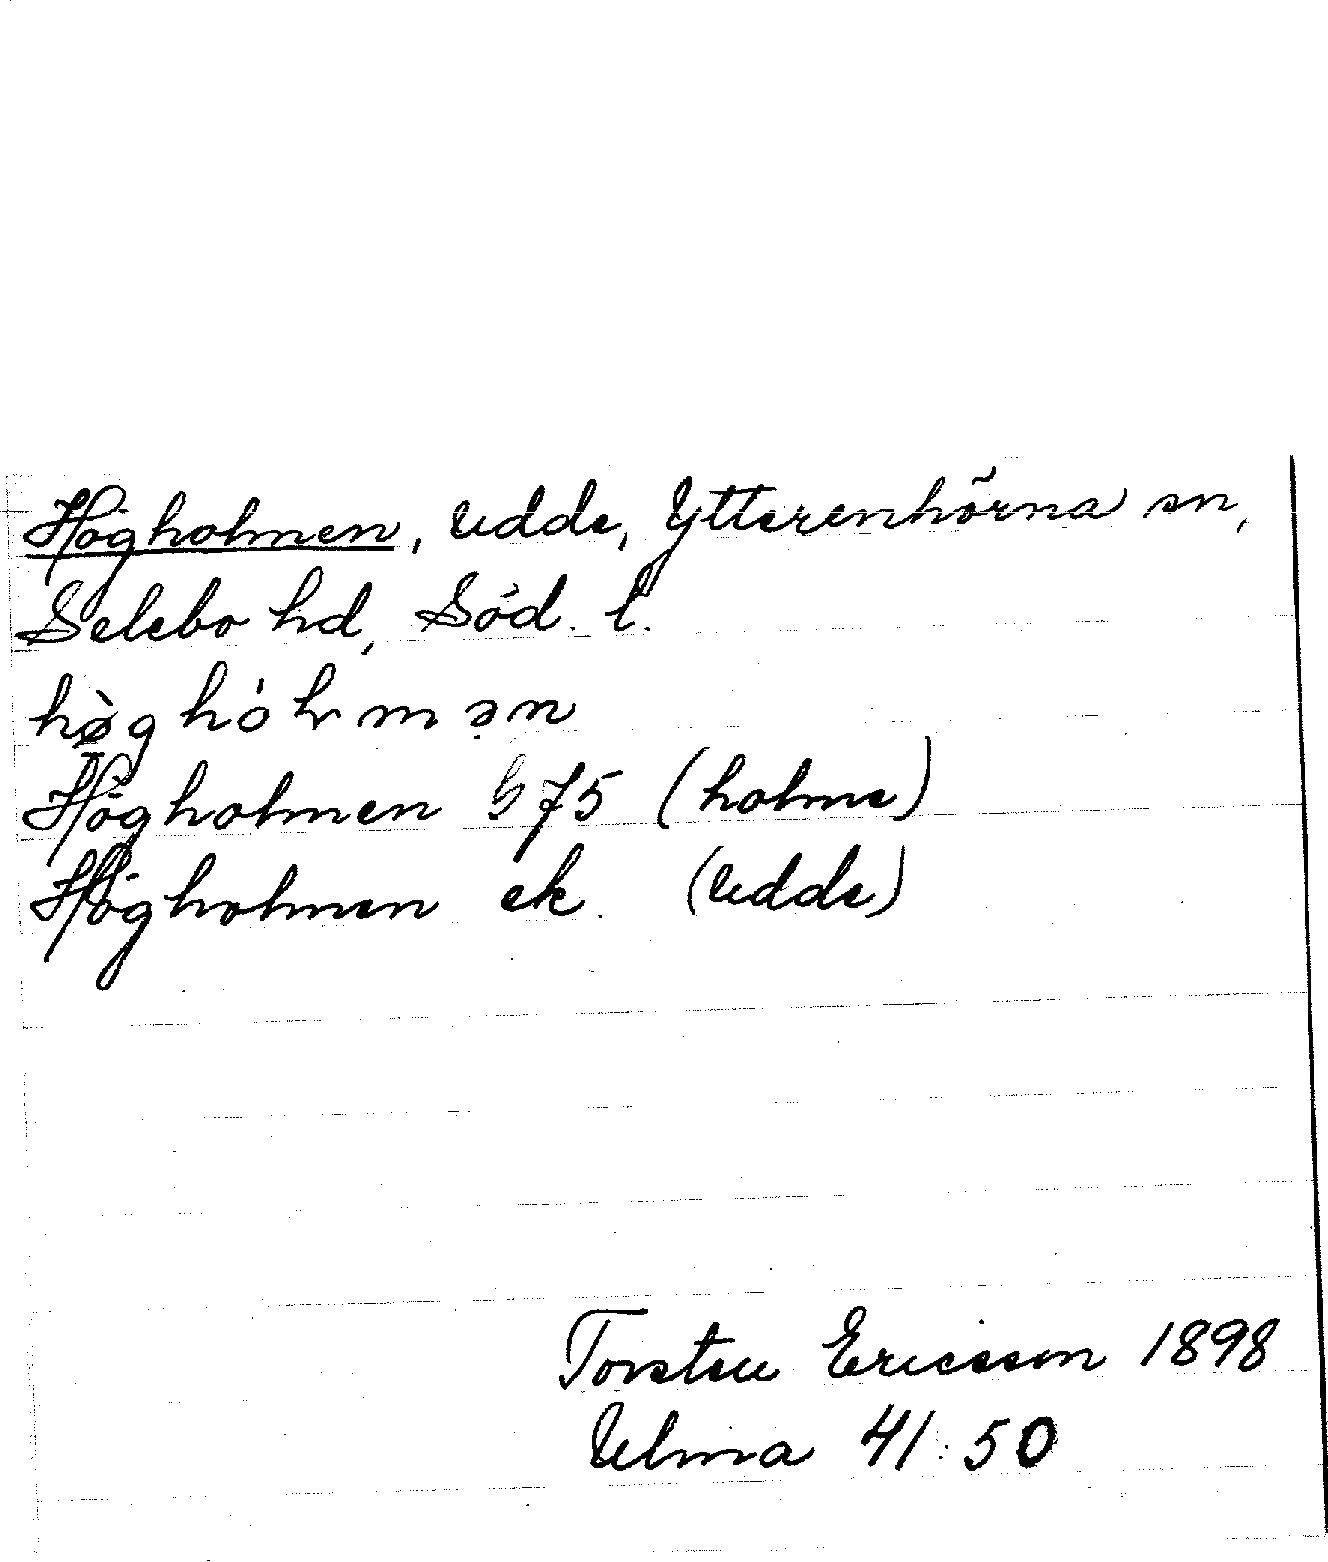 Högholmen, Udde, Ytterenhörna sn,
Selebo hd, Söd. l.
hø̀g hólmən
Högholmen 575 (holme)
Högholmen ek. (Udde)
Torsten Ericsson 1898
Ulma 41:50